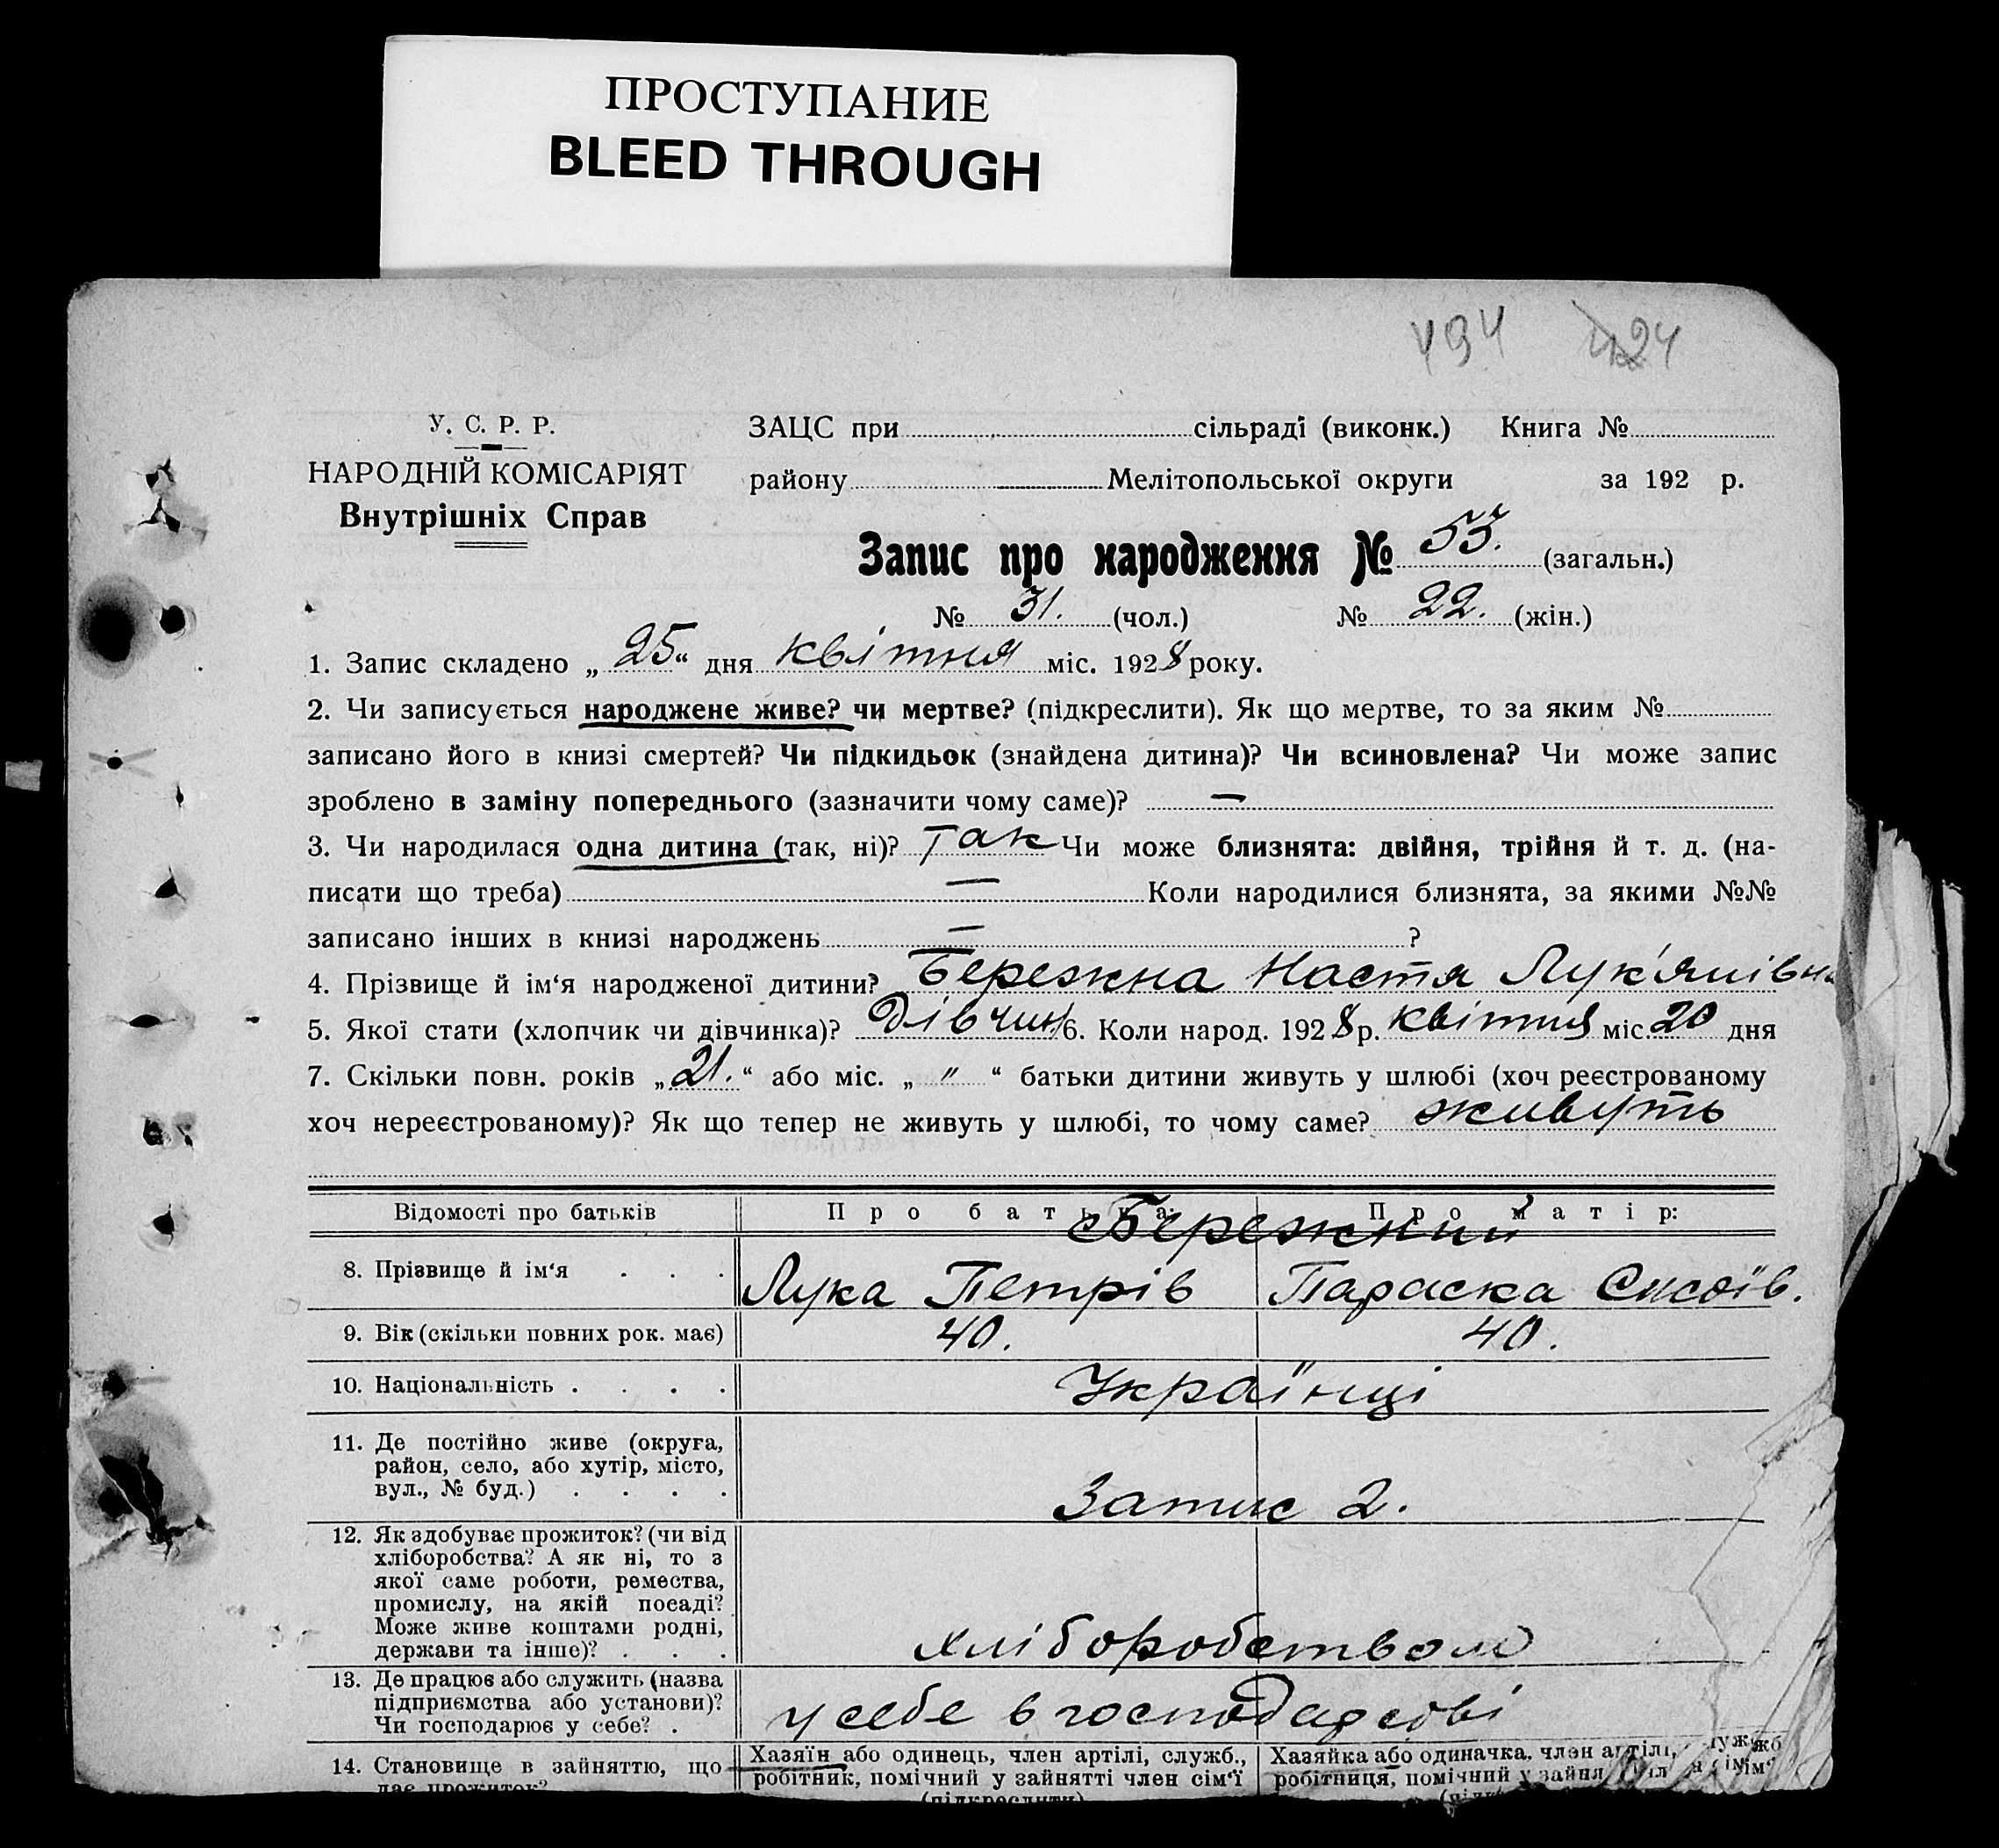 ПРОСТУПАНИЕ
BLEED THROUGH
494 424
У. С. Р. Р.
НАРОДНІЙ КОМІСАРІЯТ
Внутрішніх Справ
ЗАЦС при сільраді (виконк.) Книга №
району Мелітопольської округи за 192 р.
Запис про народження № 53. (загальн.)
№ 31. (чол.) № 22. (жін.)
1. Запис складено „ 25 “ дня квітня міс. 1928 року.
2. Чи записується народжене живе? чи мертве? (підкреслити). Як що мертве, то за яким №
записано його в книзі смертей? Чи підкидьок (знайдена дитина)? Чи всиновлена? Чи може запис
зроблено в заміну попереднього (зазначити чому саме)? —
3. Чи народилася одна дитина (так, ні)? так Чи може близнята: двійня, трійня й т. д. (на-
писати що треба) — Коли народилися близнята, за якими №№
записано інших в книзі народжень — ?
4. Прізвище й ім‘я народженої дитини? Бережна Настя Лук'янівн
5. Якої стати (хлопчик чи дівчинка)? Дівчин. 6. Коли народ. 1928 р. квітня міс. 20 дня
7. Скільки повн. років „ 21. “ або міс. „ " “ батьки дитини живуть у шлюбі (хоч реєстрованому
хоч нереєстрованому)? Як що тепер не живуть у шлюбі, то чому саме? живуть
Відомості про батьків Про батька: Про матір:
Бережний
8. Прізвище й ім‘я . . . Лука Петрів Параска Сисоїв.
9. Вік (скільки повних рок. має) 40. 40.
10. Національність . . . . Українці
11. Де постійно живе (округа,
район, село, або хутір, місто,
вул., № буд.) . . . . Запис 2.
12. Як здобуває прожиток? (чи від
хліборобства? А як ні, то з
якої саме роботи, ремества,
промислу, на якій посаді?
Може живе коштами родні,
держави та інше)? . . . хліборобством
13. Де працює або служить (назва
підприємства або установи)?
Чи господарює у себе? . у себе в господарсві
14. Становище в зайняттю, що
дає прожиток?
Хазяїн або одинець, член артілі, служб.,
робітник, помічний у зайнятті член сім‘ї
(підкреслити)
Хазяйка або одиначка, член артілі,
робітниця, помічний у зайня